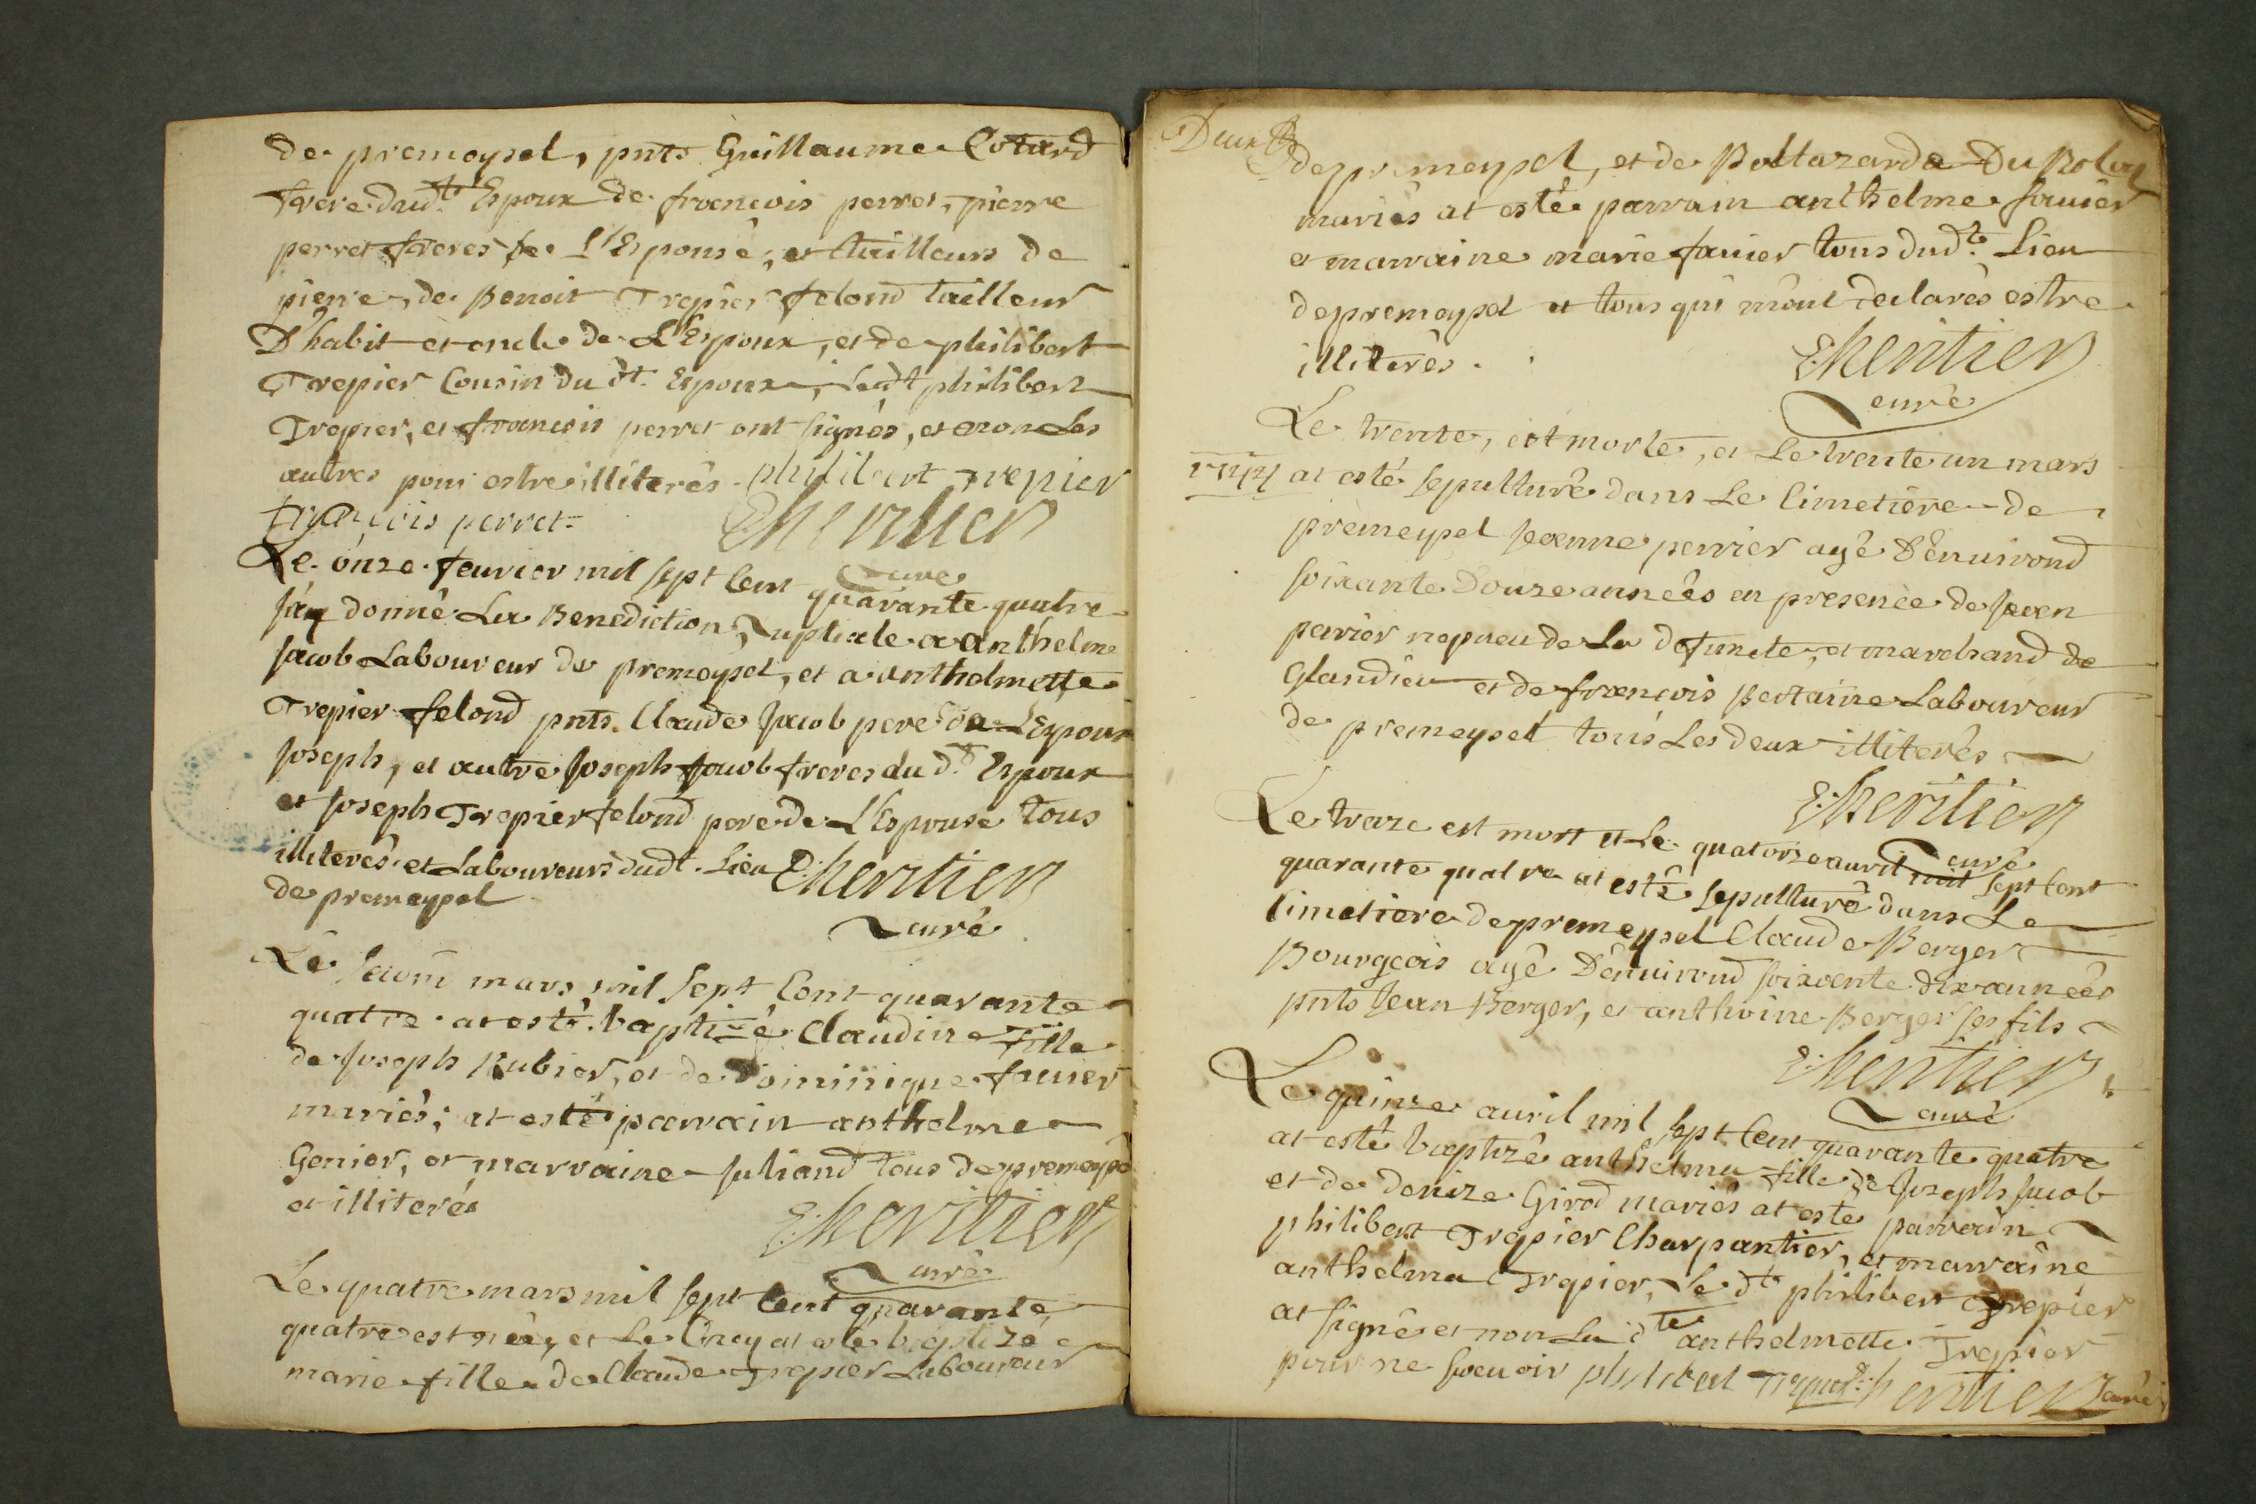 de premeysel, pnts Guillaume Cotard
frere dud.t Espoux de françois perret, pierre
perret freres de L'Epouse, et tailleurs de
pierre, de Benoit Trepier felond tailleur
D'habit et oncle de L'Espoux, et de philibert
Trepier Cousin du dt. Espoux, Ledt philibert
Trepier, et françois perret ont signés, et non Les
autres pour estre illiterés. philibert Trepier
françois perret
E: heritier
Curé
Le onze feurier mil sept Cent quarante quatre
Jay donné La Benediction Nuptiale a anthelme
Jacob Laboureur de premeysel, et a anthelmette
Trepier felond pnts. Claude Jacob pere de L'Espoux
Joseph, et autre Joseph Jacob freres du d.t Espoux
et Joseph Trepier felond pere de L'Espouse tous
illiterés et Laboureurs dudt. Lieu E: heritier
de premeysel
Curé
Le mars mil Sept Cent quarante
quatre at esté baptizé Claudine fille
de Joseph Rubier, et de Dominique fauier
mariés; at esté parrain anthelme
Genier, et marraine Juliand tous de premeysel
et illiterés
E: heritier
Curé
Le quatre mars mil sept Cent quarante
quatre est née, et Le Cincq at esté baptizé
marie fille de Claude Trepier Laboureur
Deux
de premeysel, et de Baltazarde Du
mariés at esté parrain anthelme fauier
et marraine marie fauier tous dud.t Lieu
de premeysel et tous qui m'ont declarés estre
illiterés.
E: heritier
curé
Le trente, est morte, et Le trente un mars
1744 at esté sepulturé dans Le Cimetiere de
premeysel Jeanne perrier agé D'enuirond
soixante Douze années en presence de Jean
perrier nepueu de La defuncte, et marchand de
Glandieu et de françois Bertaine Laboureur
de premeysel tous Les deux illiterés
E: heritier
curé
Le traze est mort et Le quatorze auril mil sept Cent
quarante quatre at esté sepulturé dans Le
Cimetiere de premeysel Claude Berger
Bourgeois agé D'enuirond soixante dix années
pnts Jean Berger, et anthoine Berger ses fils
E: heritier
curé
Le quinze auril mil sept Cent quarante quatre
at esté baptizé anthelma fille de Joseph Jacob
et de denize Girod mariés at esté parrain
philibert Trepier Charpantier, et marraine
anthelma Trepier, Le dt philibert Trepier
at signé et non La dte anthelmette Trepier
pour ne scauoir philibert Trepier E: heritier curé